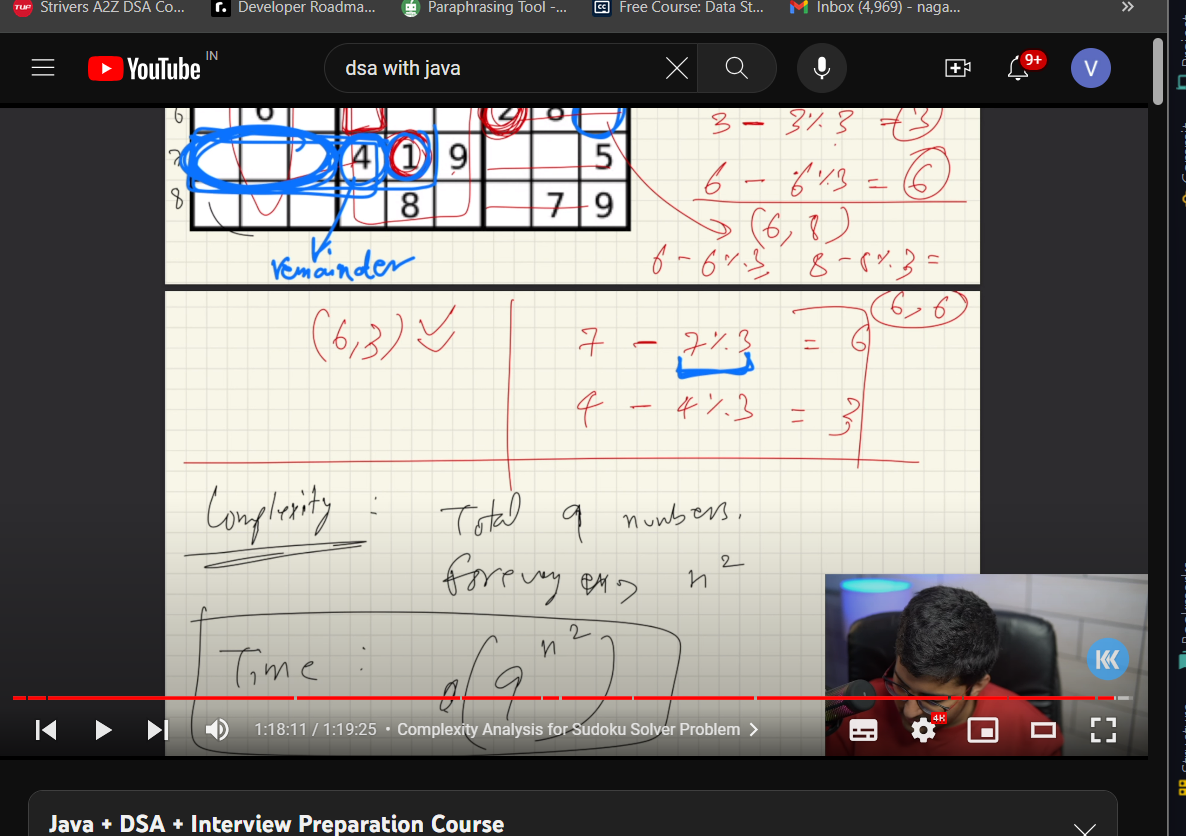 Strivers A2Z DSA Co... Developer Roadma... Paraphrasing Tool -... Free Course: Data St... Inbox (4,969) - naga...
YouTube IN
dsa with java
9+
V
6 6 2 8
7 4 1 9 5
8 8 7 9
remainder
3 - 3%3 = 3
6 - 6%3 = 6
(6, 8)
6 - 6%3 8 - 8%3 =
(6, 6)
(6,3)
7 - 7%3 = 6
4 - 4%3 = 3
Complexity : Total 9 numbers.
n²
Time : O(9^n²)
1:18:11 / 1:19:25 • Complexity Analysis for Sudoku Solver Problem
4K
Java + DSA + Interview Preparation Course